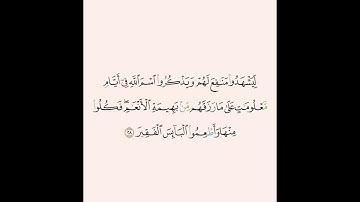 لِّيَشْهَدُوا۟ مَنَٰفِعَ لَهُمْ وَيَذْكُرُوا۟ ٱسْمَ ٱللَّهِ فِىٓ أَيَّامٍ
مَّعْلُومَٰتٍ عَلَىٰ مَا رَزَقَهُم مِّنۢ بَهِيمَةِ ٱلْأَنْعَٰمِ ۖ فَكُلُوا۟
مِنْهَا وَأَطْعِمُوا۟ ٱلْبَآئِسَ ٱلْفَقِيرَ ٢٨